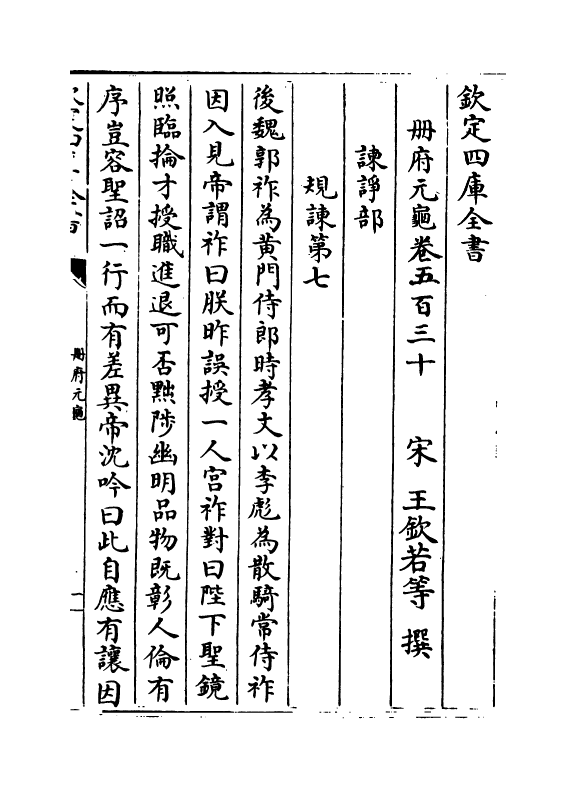 欽定四庫全書
册府元龜卷五百三十　宋　王欽若等　撰
諫諍部
規諫第七
後魏郭祚為黃門侍郎時孝文以李彪為散騎常侍祚
因入見帝謂祚曰朕昨誤授一人宫祚對曰陛下聖鏡
照臨掄才授職進退可否黜陟幽明品物既彰人倫有
序豈容聖詔一行而有差異帝沈吟曰此自應有讓因
册府元龜